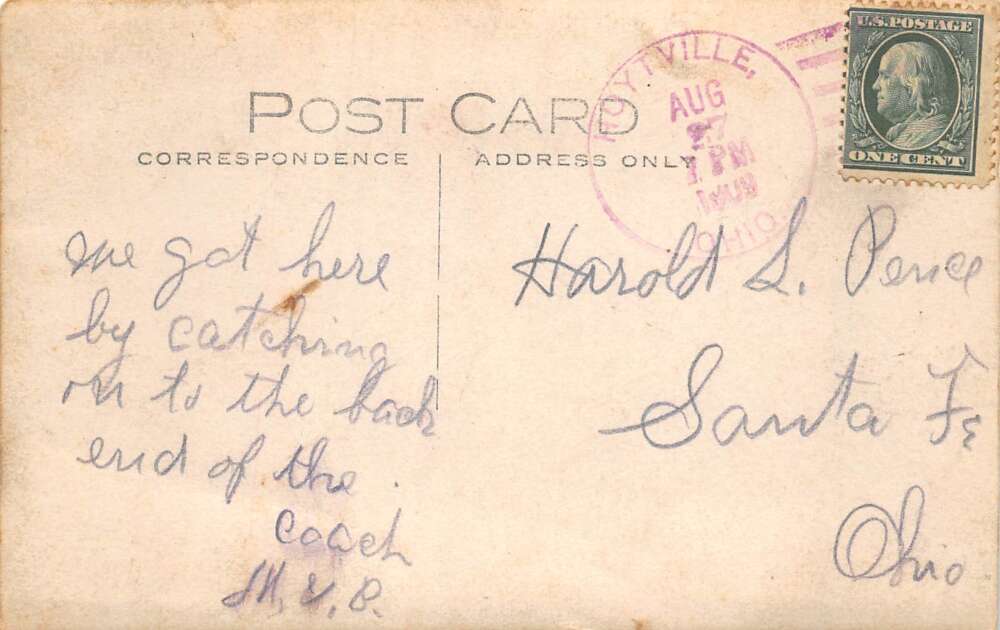 U.S. POSTAGE
ONE CENT
HOYTVILLE,
AUG
PM
OHIO.
POST CARD
CORRESPONDENCE
ADDRESS ONLY
we got here
by catching
on to the back
end of the
coach
Harold L. Pence
Santa Fe
Ohio